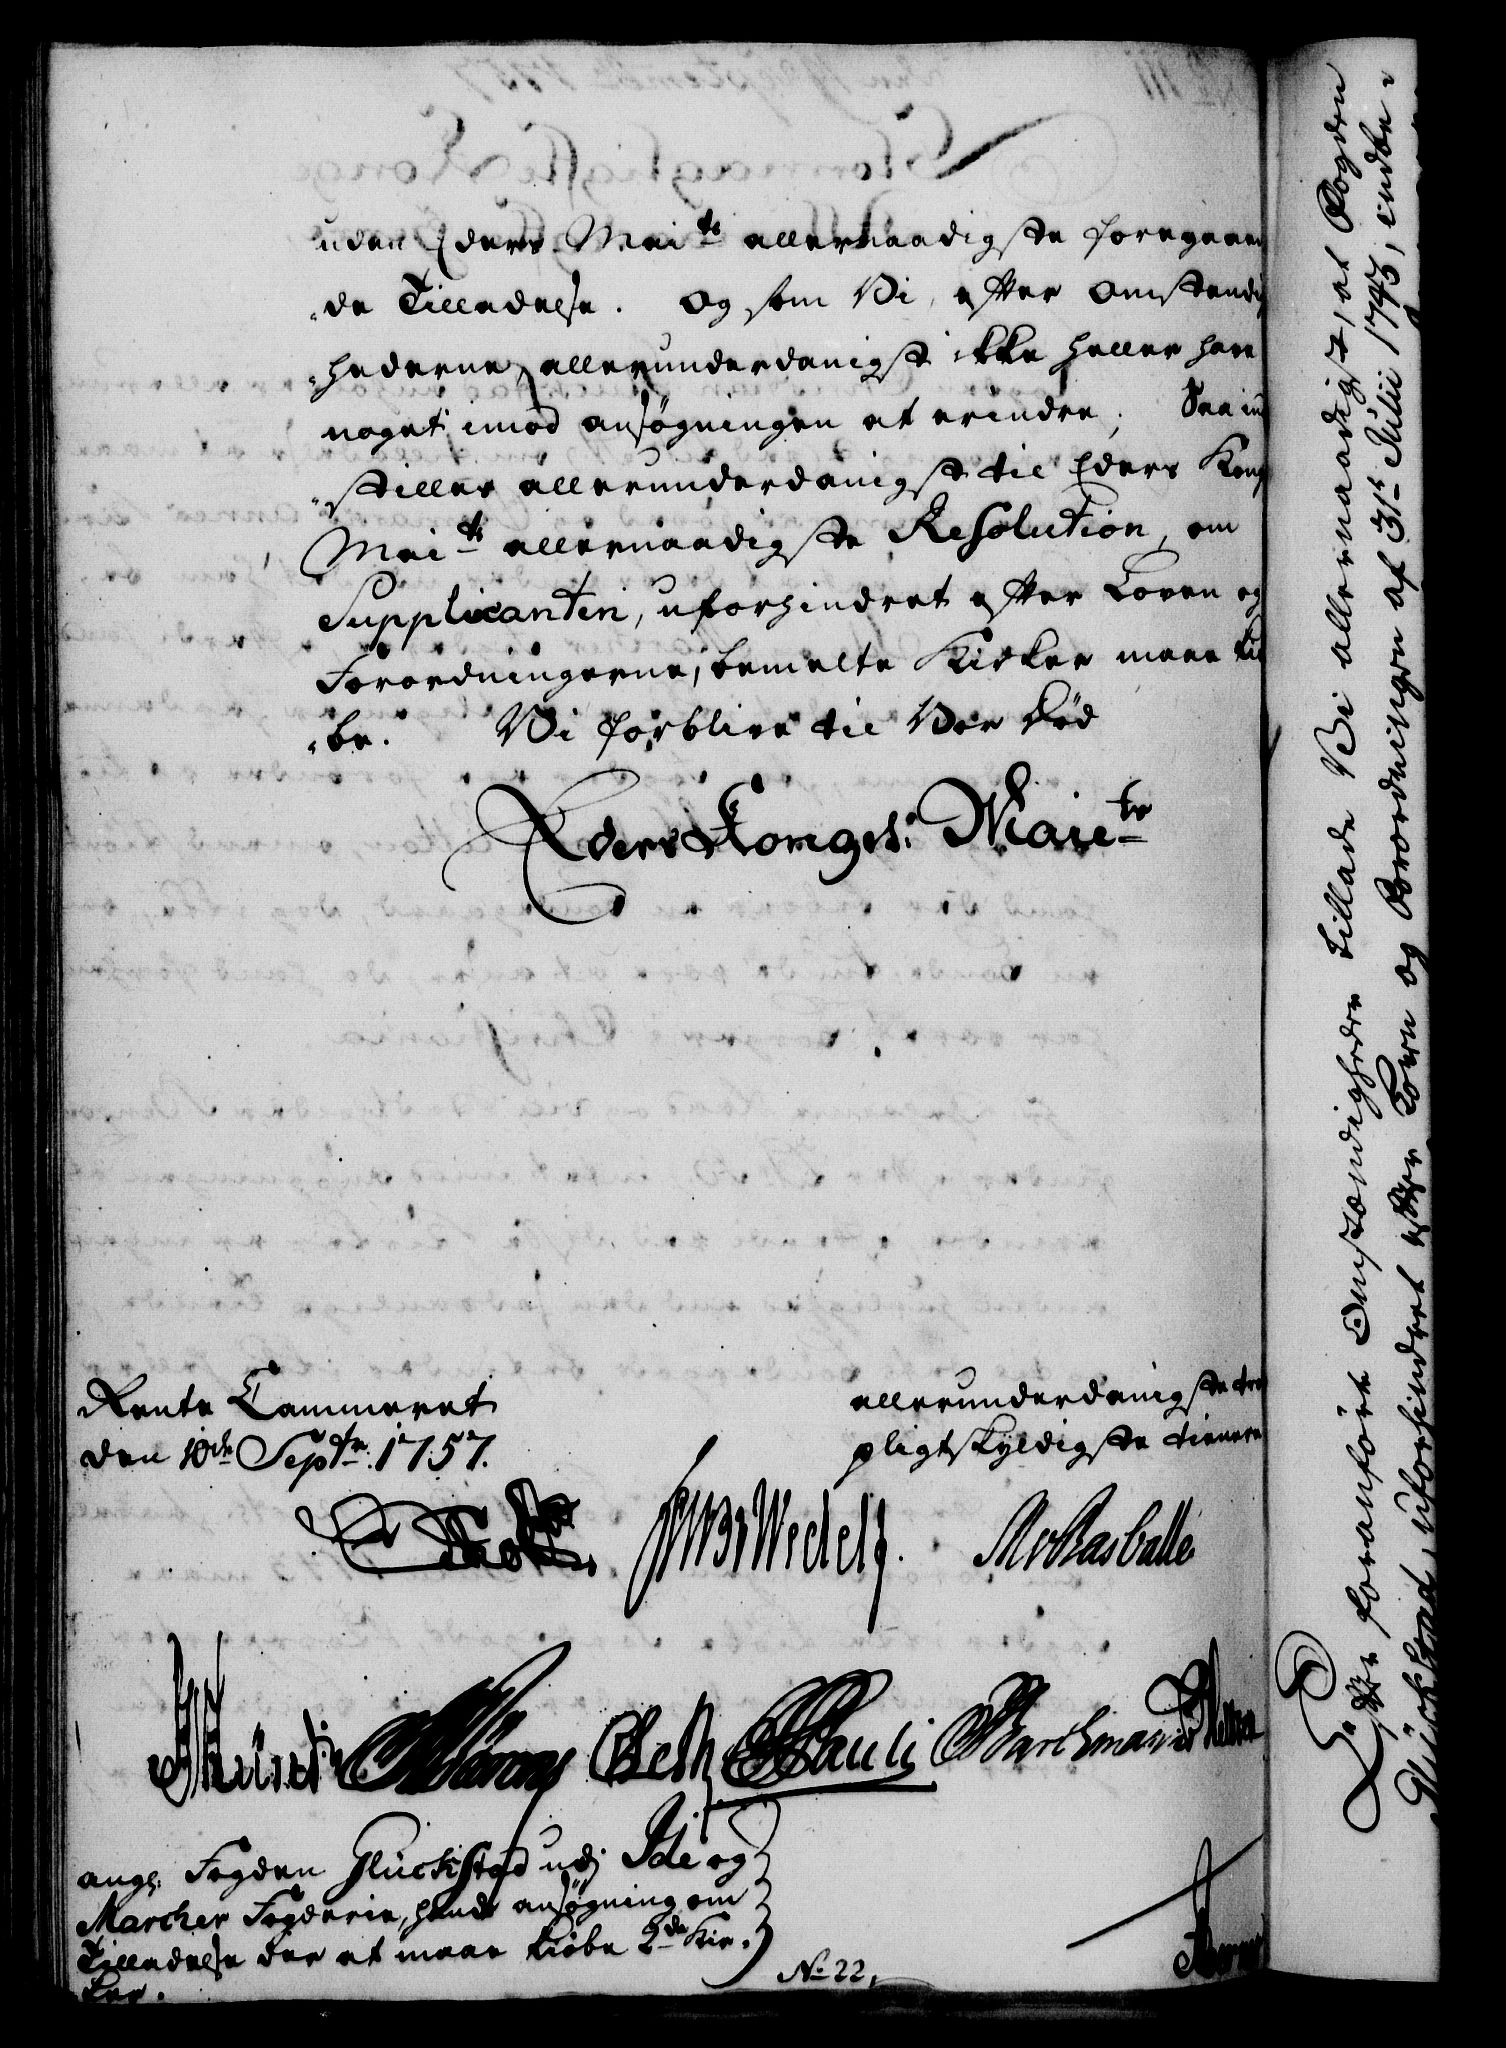 uden Eders Mai.ts allernaadigste foregaaen
de Tilladelse. Og som Vi, efter Omstendig
hederne, allerunderdanigst ikke heller have
noget imod ansøgningen at erindre; Saa ind
stilles allerunderdanigst til Eders Kongl.
Mai.ts allernaadigste Resolution, om
Supplicanten, uforhindret efter Loven og
Forordningerne, bemelte Kirker maae kiø
be. Vi forblive til Vor Død
Eders Kongel: Maie.ts
Rente Cammeret
den 10de Septr. 1757.
allerunderdanigste troe
pligtskyldigste tienere
Wedell.
MvRasballe
Pauli
ang: Fogden Glückstad udj Ide og
Marcher Fogderie, hands ansøgning om
Tilladelse der at maae kiøbe 2de Kir-
ker.
No 22.
Efter foranførte Omstændigheder tillade Vi allernaadigst, at Fogden
Glückstad, uforhindret efter Loven og Forordningen af 31te Julii 1743, indbe